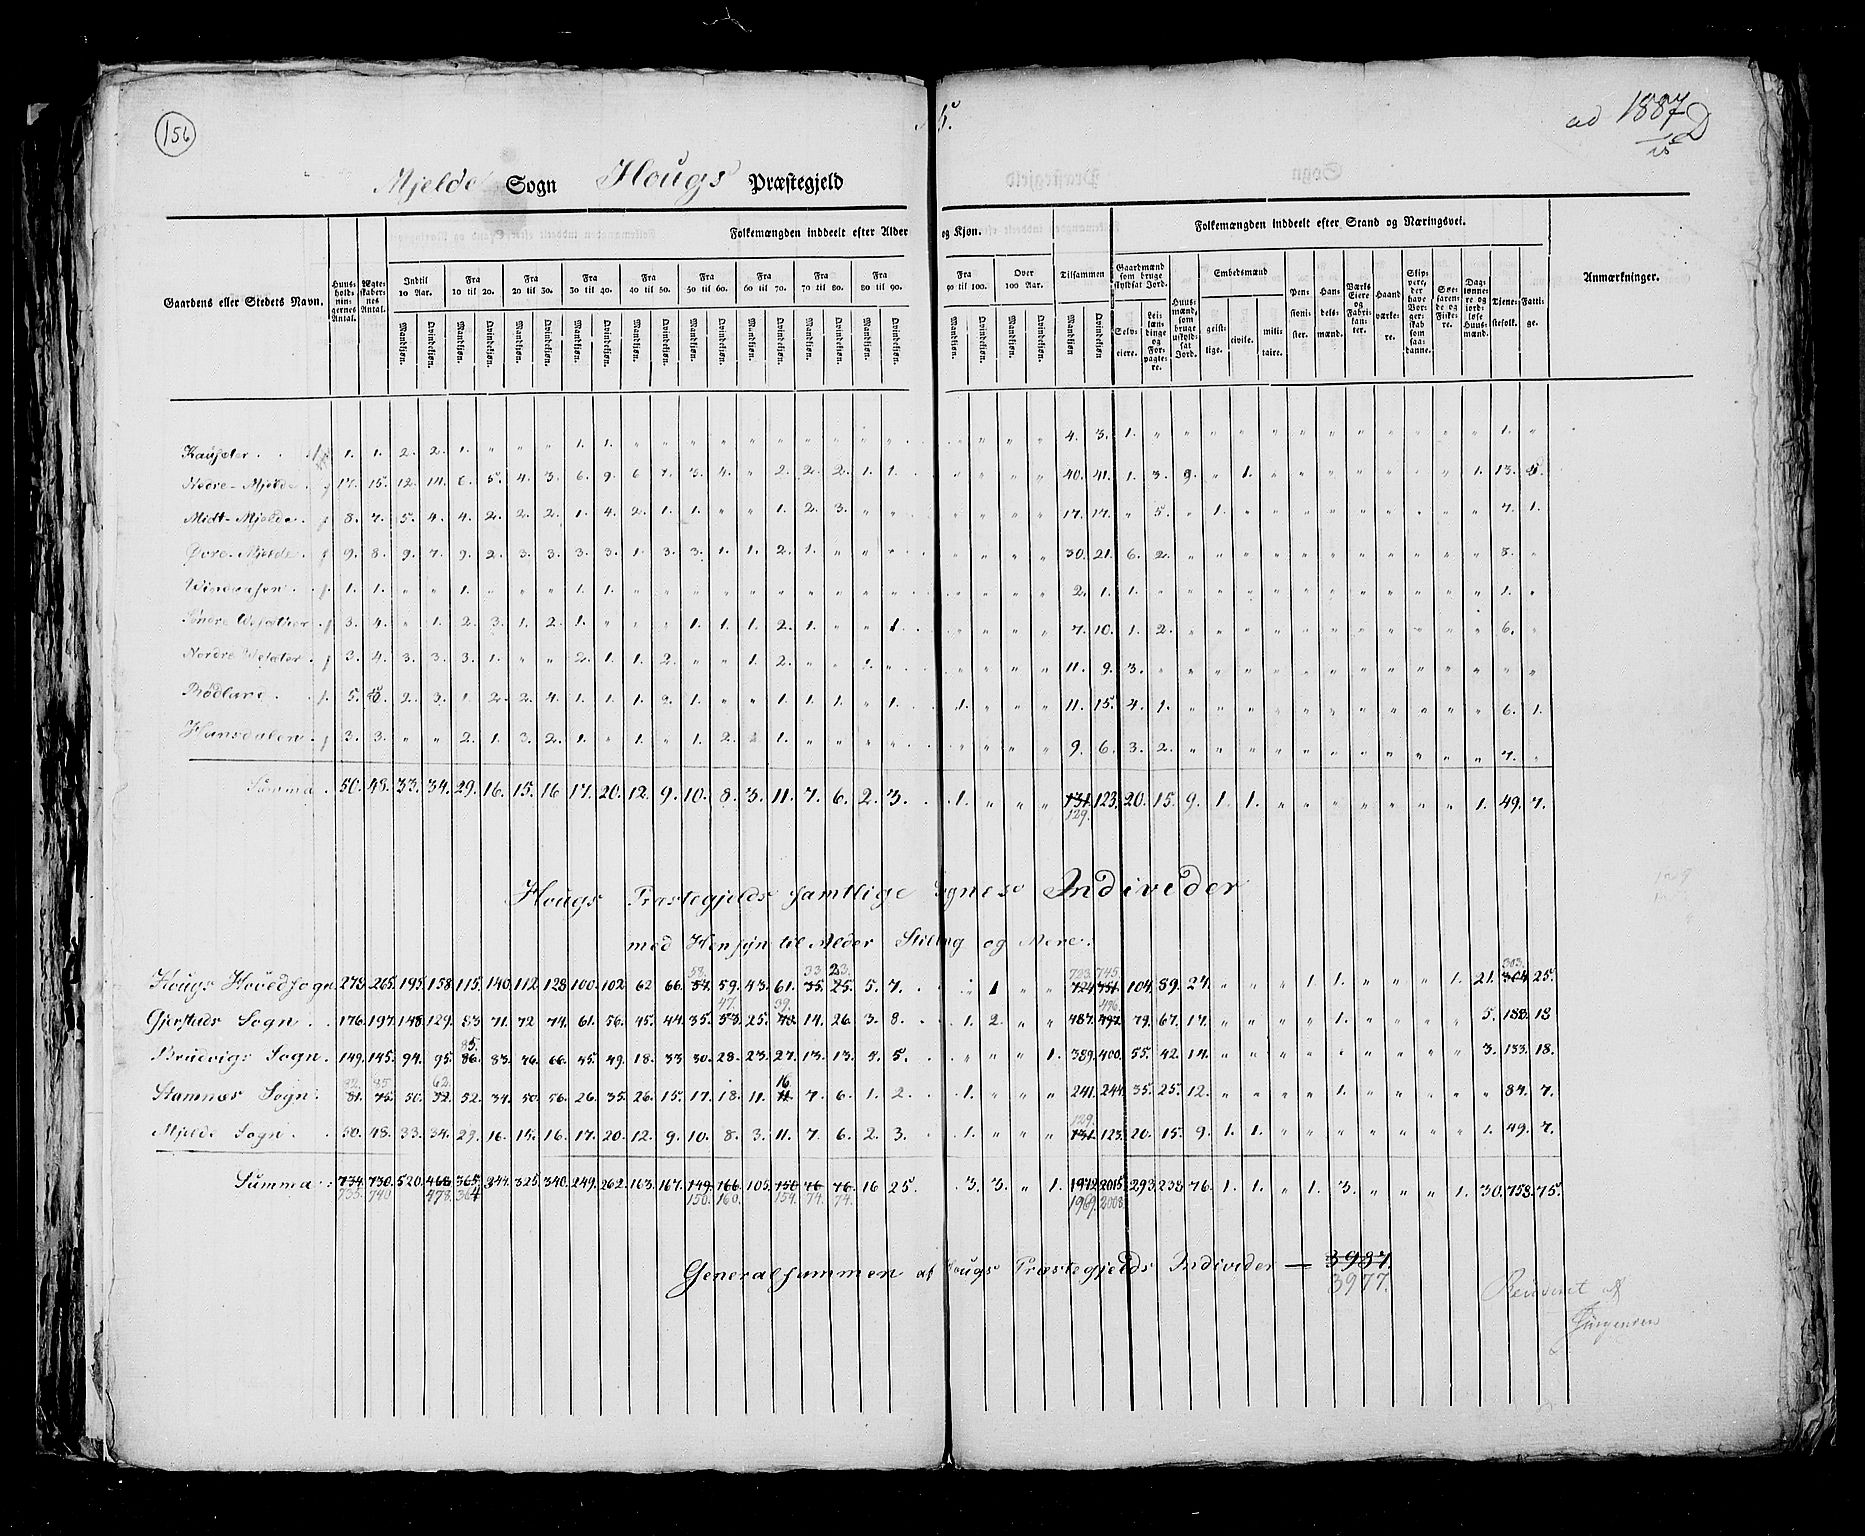 156
5.
ad 1887 D
Mjelde Sogn Hougs Præstegjeld
Gaardens eller Stedets Navn. Huusholdningernes Antal. Ægteskabernes Antal. Folkemængden inddeelt efter Alder og Kjøn. Tilsammen Folkemængden inddeelt efter Stand og Næringsvei. Anmærkninger.
Indtil 10 Aar. Fra 10 til 20. Fra 20 til 30. Fra 30 til 40. Fra 40 til 50. Fra 50 til 60. Fra 60 til 70. Fra 70 til 80. Fra 80 til 90. Fra 90 til 100. Over 100 Aar.
Mandkjøn. Qvindekjøn. Mandkjøn. Qvindekjøn. Mandkjøn. Qvindekjøn. Mandkjøn. Qvindekjøn. Mandkjøn. Qvindekjøn. Mandkjøn. Qvindekjøn. Mandkjøn. Qvindekjøn. Mandkjøn. Qvindekjøn. Mandkjøn. Qvindekjøn. Mandkjøn. Qvindekjøn. Mandkjøn. Qvindekjøn. Mandkjøn Qvindekjøn.
Gaardmænd som bruge skyldsat Jord. Selveiere. Leilændinge og Forpagtere. Huusmænd, som bruge uskyldsat Jord. Embedsmænd geistlige. civile. militaire. Pensionister. Handelsmænd. Værks Eiere og Fabrikanter. Haandværkere. Skippere, der have Borgerskab som saadanne. Søefarende og Fiskere. Daglønnere og jordløse Huusmænd. Tjenestefolk. Fattige.
Kauseter 1. 1. 2. 2. 1. " " " 1. 1. " " " " " " " " " " " " " " 4. 3. 1. " " " " " " " " " " " " 1. "
Nedre-Mjelde 17. 15. 12. 14. 6. 5. 4. 3. 6. 9. 6 7. 3. 4. " 2. 2. 2. 1. 1. " " " " 40. 41. 1. 3. 9. " 1. " " " " " " " 1. 13.
Midt-Mjelde 8. 7. 5. 4. 4. 2. 2. 2. 1. 4. 2. 1. 1. " " 1. 2. 3. " " " " " " 17. 17. " 5. " 1. " " " " " " " " " 7. 1.
Øvre-Mjelde 9. 8. 9. 7. 9. 2. 3. 3. 3. 3. 1. 3. 3. 1. 1. 2. 1. " " " " " " " 30. 21. 6. 2. " " " " " " " " " " " 8. "
1. 1. " " 1. " " " 1. 1. " " " " " " " " " " " " " " 2. 1. 1. " " " " " " " " " " " " 1. "
3. 4. " 1. 2. 3. 1. 2. 1. " " " 1. 1. 1. 2. 1. " " 1. " " " " 7. 10. 1. 2. " " " " " " " " " " " 6. "
3. 4. 3. 3. 3. 1. " " 2. 1. 1. 2. " " 1. 2. " " 1. " " " " " 11. 9. 3. " " " " " " " " " " " " " "
5. 2. 3. 1. 2. 2. 4. 1. 1. 1. 2. 1. " " 1. 1. 1. " 1. 1. " " " 11. 15. 4. 1. " " " " " " " " " " " 6. 1.
Hansdalen 3. 3. " " 2. 1. 3. 2. 1. " 1. " 1. 2. 2 1. " " " " " " " " 9. 6. 3. 2. " " " " " " " " " " " 7. "
Summa 50. 48. 33. 34. 29. 16. 15. 16 17. 20. 12. 9. 10. 8. 3. 11. 7. 6. 2. 3. 1. " " " 131. 123. 20. 15. 9. 1. 1. " " " " " " " 1. 49. 7.
129.
Hougs Præstegjelds samtlige Sognes Individer
med Hensyn til Alder Stilling og Mere.
58. 33. 23. 723. 745. 303.
Hougs Hovedsogn 278. 265. 195. 158. 115. 140. 112. 128 100. 102 62 66. 57. 59. 43. 61. 35. 25. 5. 7. " 1 " " 724. 751. 104. 89. 24. " " " 1. 1. " " " 1. 21. 304. 25.
47. 39. 496.
Gjersteds Sogn 176. 197. 148. 129. 83 71. 72 74. 61. 56. 45. 44. 35. 53. 25. 40. 14. 26. 3. 8. 1. 2. " " 487. 497. 79. 67. 17. " " " " 1. " " " " 5. 188. 18
85.
Brudvigs Sogn 149. 145. 94. 95. 86. 83. 76. 66. 45. 49. 18. 33. 30. 28. 23. 27. 13. 13. 4. 5. " " " 1. 389. 400. 55. 42. 14. " " " " " " " " " 3. 133. 18.
82. 85. 62. 16.
Stamnes Sogn 81. 75. 50. 52. 52. 34. 50. 56. 26. 35. 26. 15. 17. 18. 11. 11. 7. 6. 1. 2. 1. " " " 241. 244. 35. 25. 12. " " " " 1. " " " " " 84. 7.
129.
Mjelde Sogn. 50. 48. 33. 34. 29. 16. 15. 16. 17. 20. 12. 9. 10. 8. 3. 11. 7. 6. 2. 3. 1. " " " 131. 123. 20. 15. 9. 1. 1. " " " " " " " 1. 49. 7.
Summa 734. 730. 520. 468. 365. 344. 325. 340. 249. 262. 163. 167. 149. 166. 105. 150. 76. 76. 16 25. 3. 3. " 1. 1972. 2015. 293. 238. 76. 1. 1. " 1. 3. " " " 1. 30. 758. 75.
735. 740 478. 364 150. 160. 154. 74. 74. 1969. 2008.
Generalsummen af Hougs Præstegjelds Individer — 3987.
3977.
Revideret af
Jürgensen